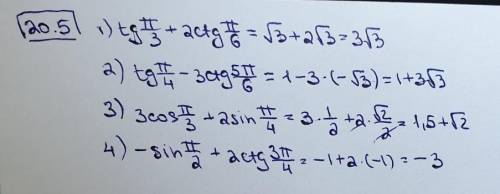 20.5 1) tg π/3 + 2ctg π/6 = √3 + 2√3 = 3√3
2) tg π/4 - 3ctg 5π/6 = 1 - 3 · (-√3) = 1 + 3√3
3) 3cos π/3 + 2sin π/4 = 3 · 1/2 + 2 · √2/2 = 1,5 + √2
4) - sin π/2 + 2ctg 3π/4 = -1 + 2 · (-1) = -3